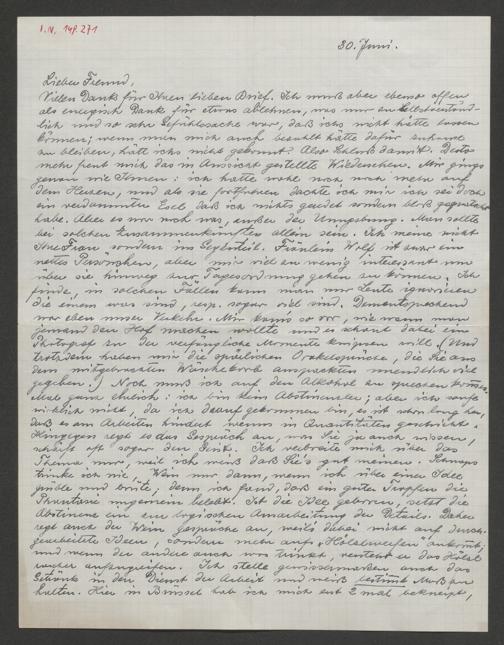 I.N. 149.271
30. Juni.
Lieber Freund,
Vielen Dank für Ihren lieben Brief. Ich muß aber ebenso offen
als energisch Dank für etwas ablehnen, was nur so selbstverständ-
lich und so sehr Gefühlssache war, daß ichs nicht hätte lassen
können; wenn man mich auch bezahlt hätte dafür zuhause
zu bleiben, hätte ichs nicht gekonnt! Also Schluß damit. Desto
mehr freut mich das in Aussicht gestellte Wiedersehen. Mir gings
genau wie Ihnen: ich hatte wohl noch viel mehr auf
dem Herzen, und als sie fortfuhren dachte ich mir ich sei doch
ein verdammter Esel daß ich nichts geredet sondern bloß gequatscht
habe. Aber es war noch was, außer der Umgebung. Man sollte
bei solchen Zusammenkünften allein sein. Ich meine nicht
Ihre Frau sondern im Gegenteil. Fräulein Wolf ist zwar ein
nettes Persönchen, aber mir viel zu wenig interessant um
über sie hinweg zur Tagesordnung gehen zu können. Ich
finde, in solchen Fällen kann man nur Leute ignorieren
die einem was sind, resp. sogar viel sind. Dementsprechend
war eben unser Verkehr. Mir kam's so vor, wie wenn man
jemand den Hof machen wollte und es schaut dabei ein
Photograf zu der verfängliche Momente knipsen will. (Und
trotzdem haben mir die spärlichen Orakelsprüche, die Sie aus
dem mitgebrachten Wäschekorb auspackten unendlich viel
gegeben.) Noch muß ich auf den Alkohol zu sprechen kommen.
Mal ganz ehrlich: ich bin kein Abstinenzler; aber ich saufe
wirklich nicht, da ich darauf gekommen bin, es ist schon lang her,
daß es am Arbeiten hindert wenns in Quantitäten geschieht.
Hingegen regt es das Gespräch an, was Sie ja auch wissen,
schärft oft sogar den Geist. Ich verbreite mich über das
Thema nur, weil ich weiß daß Sie's gut meinen. Schnaps
trinke ich nie, Wein nur dann, wenn ich über einer Idee
grüble und brüte, denn ich fand, daß ein guter Tropfen die
Phantasie ungemein belebt. Ist die Idee geboren, setzt die
Abstinenz ein zur logischen Ausarbeitung der Details. Daher
regt auch der Wein Gespräche an, weils dabei nicht auf durch-
gearbeitete Ideen, sondern mehr aufs Hölzelwerfen ankommt;
und wenn der andere auch was trinkt, versteht er das Hölzel
rascher aufzugreifen. Ich stelle gewissermaßen auch das
Getränk in den Dienst der Arbeit und weiß bestimmt Maß zu
halten. Hier in Brüssel hab ich mich erst 2 mal bekneipt,